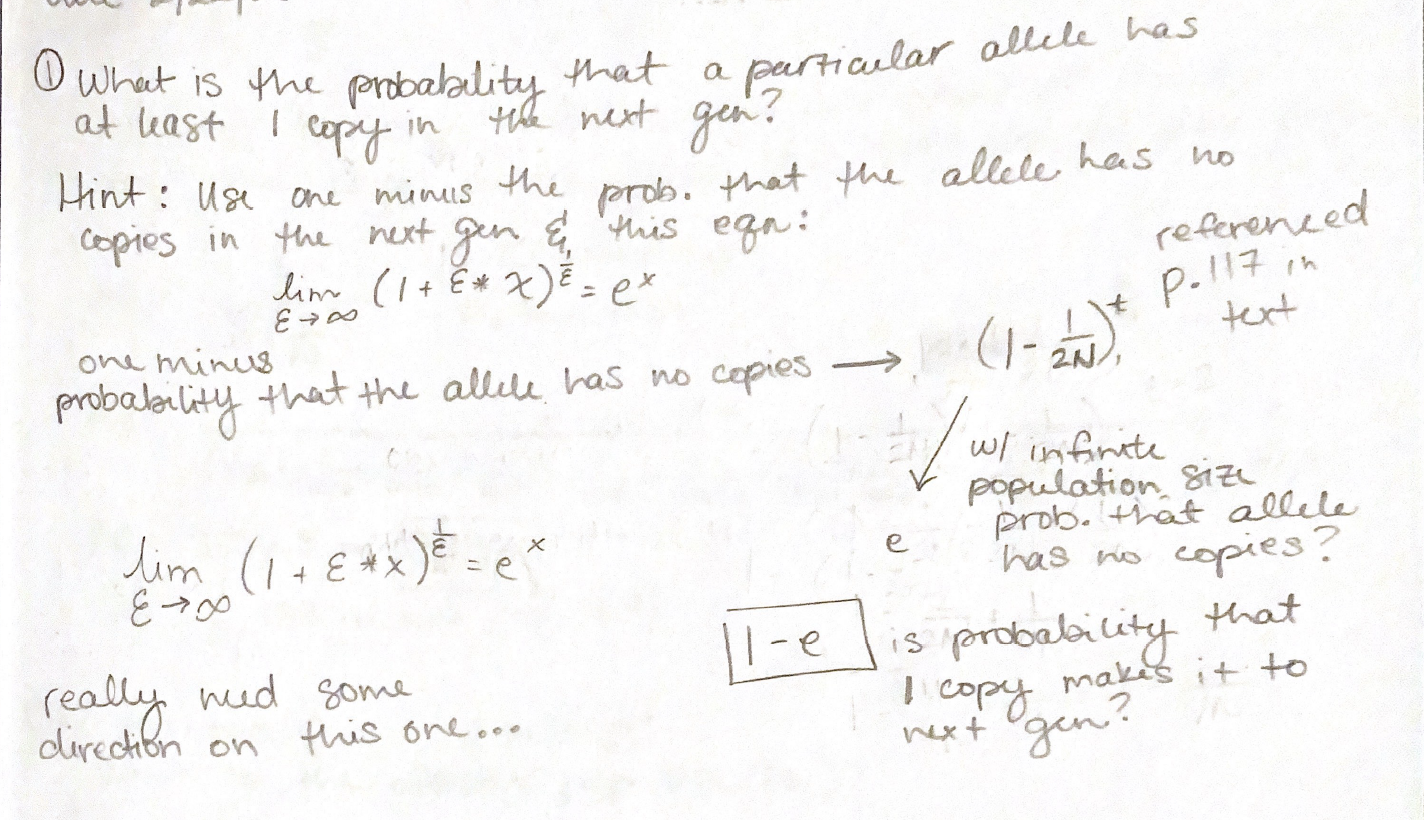 ① What is the probability that a particular allele has
at least 1 copy in the next gen?
Hint: Use one minus the prob. that the allele has no
copies in the next gen & this eqn:
lim ε→∞ (1 + ε * x)^(1/ε) = e^x
referenced
p. 117 in
text
one minus
probability that the allele has no copies → (1 - 1/2N)^t
w/ infinite
population size
prob. that allele
has no copies?
e
lim ε→∞ (1 + ε * x)^(1/ε) = e^x
1 - e is probability that
1 copy makes it to
next gen?
really need some
direction on this one...